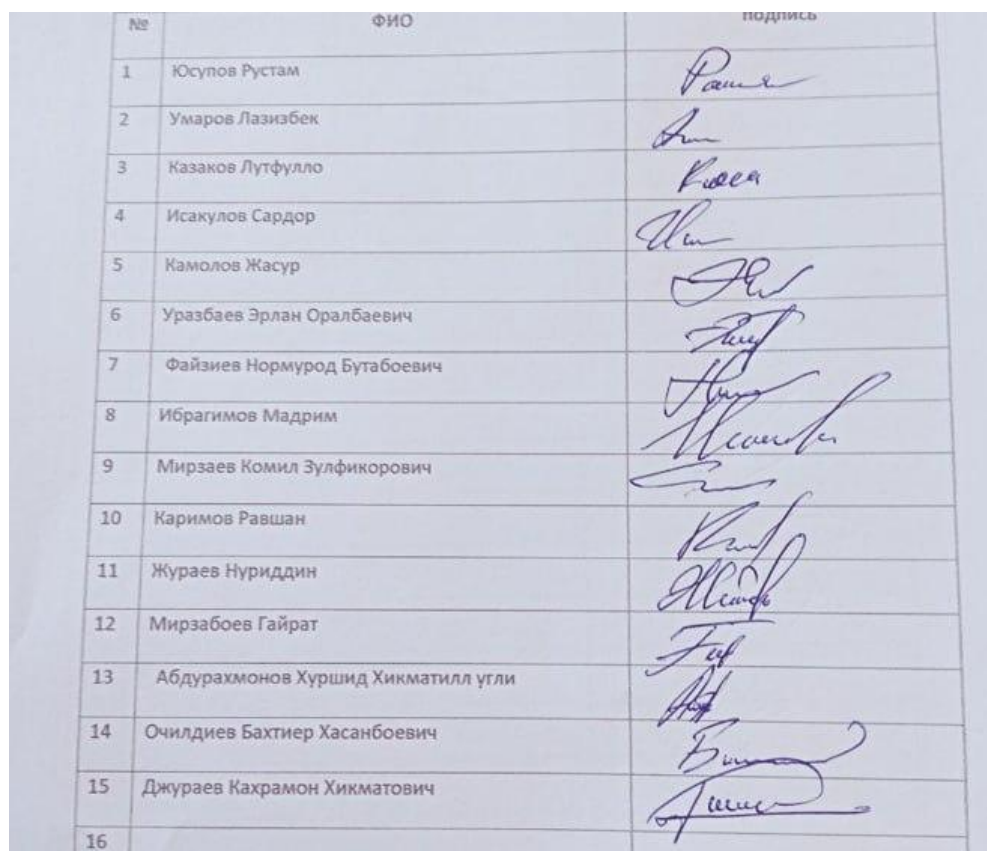 № ФИО подпись
1 Юсупов Рустам
2 Умаров Лазизбек
3 Казаков Лутфулло
4 Исакулов Сардор
5 Камолов Жасур
6 Уразбаев Эрлан Оралбаевич
7 Файзиев Нормурод Бутабоевич
8 Ибрагимов Мадрим
9 Мирзаев Комил Зулфикорович
10 Каримов Равшан
11 Жураев Нуриддин
12 Мирзабоев Гайрат
13 Абдурахмонов Хуршид Хикматилл угли
14 Очилдиев Бахтиер Хасанбоевич
15 Джураев Кахрамон Хикматович
16